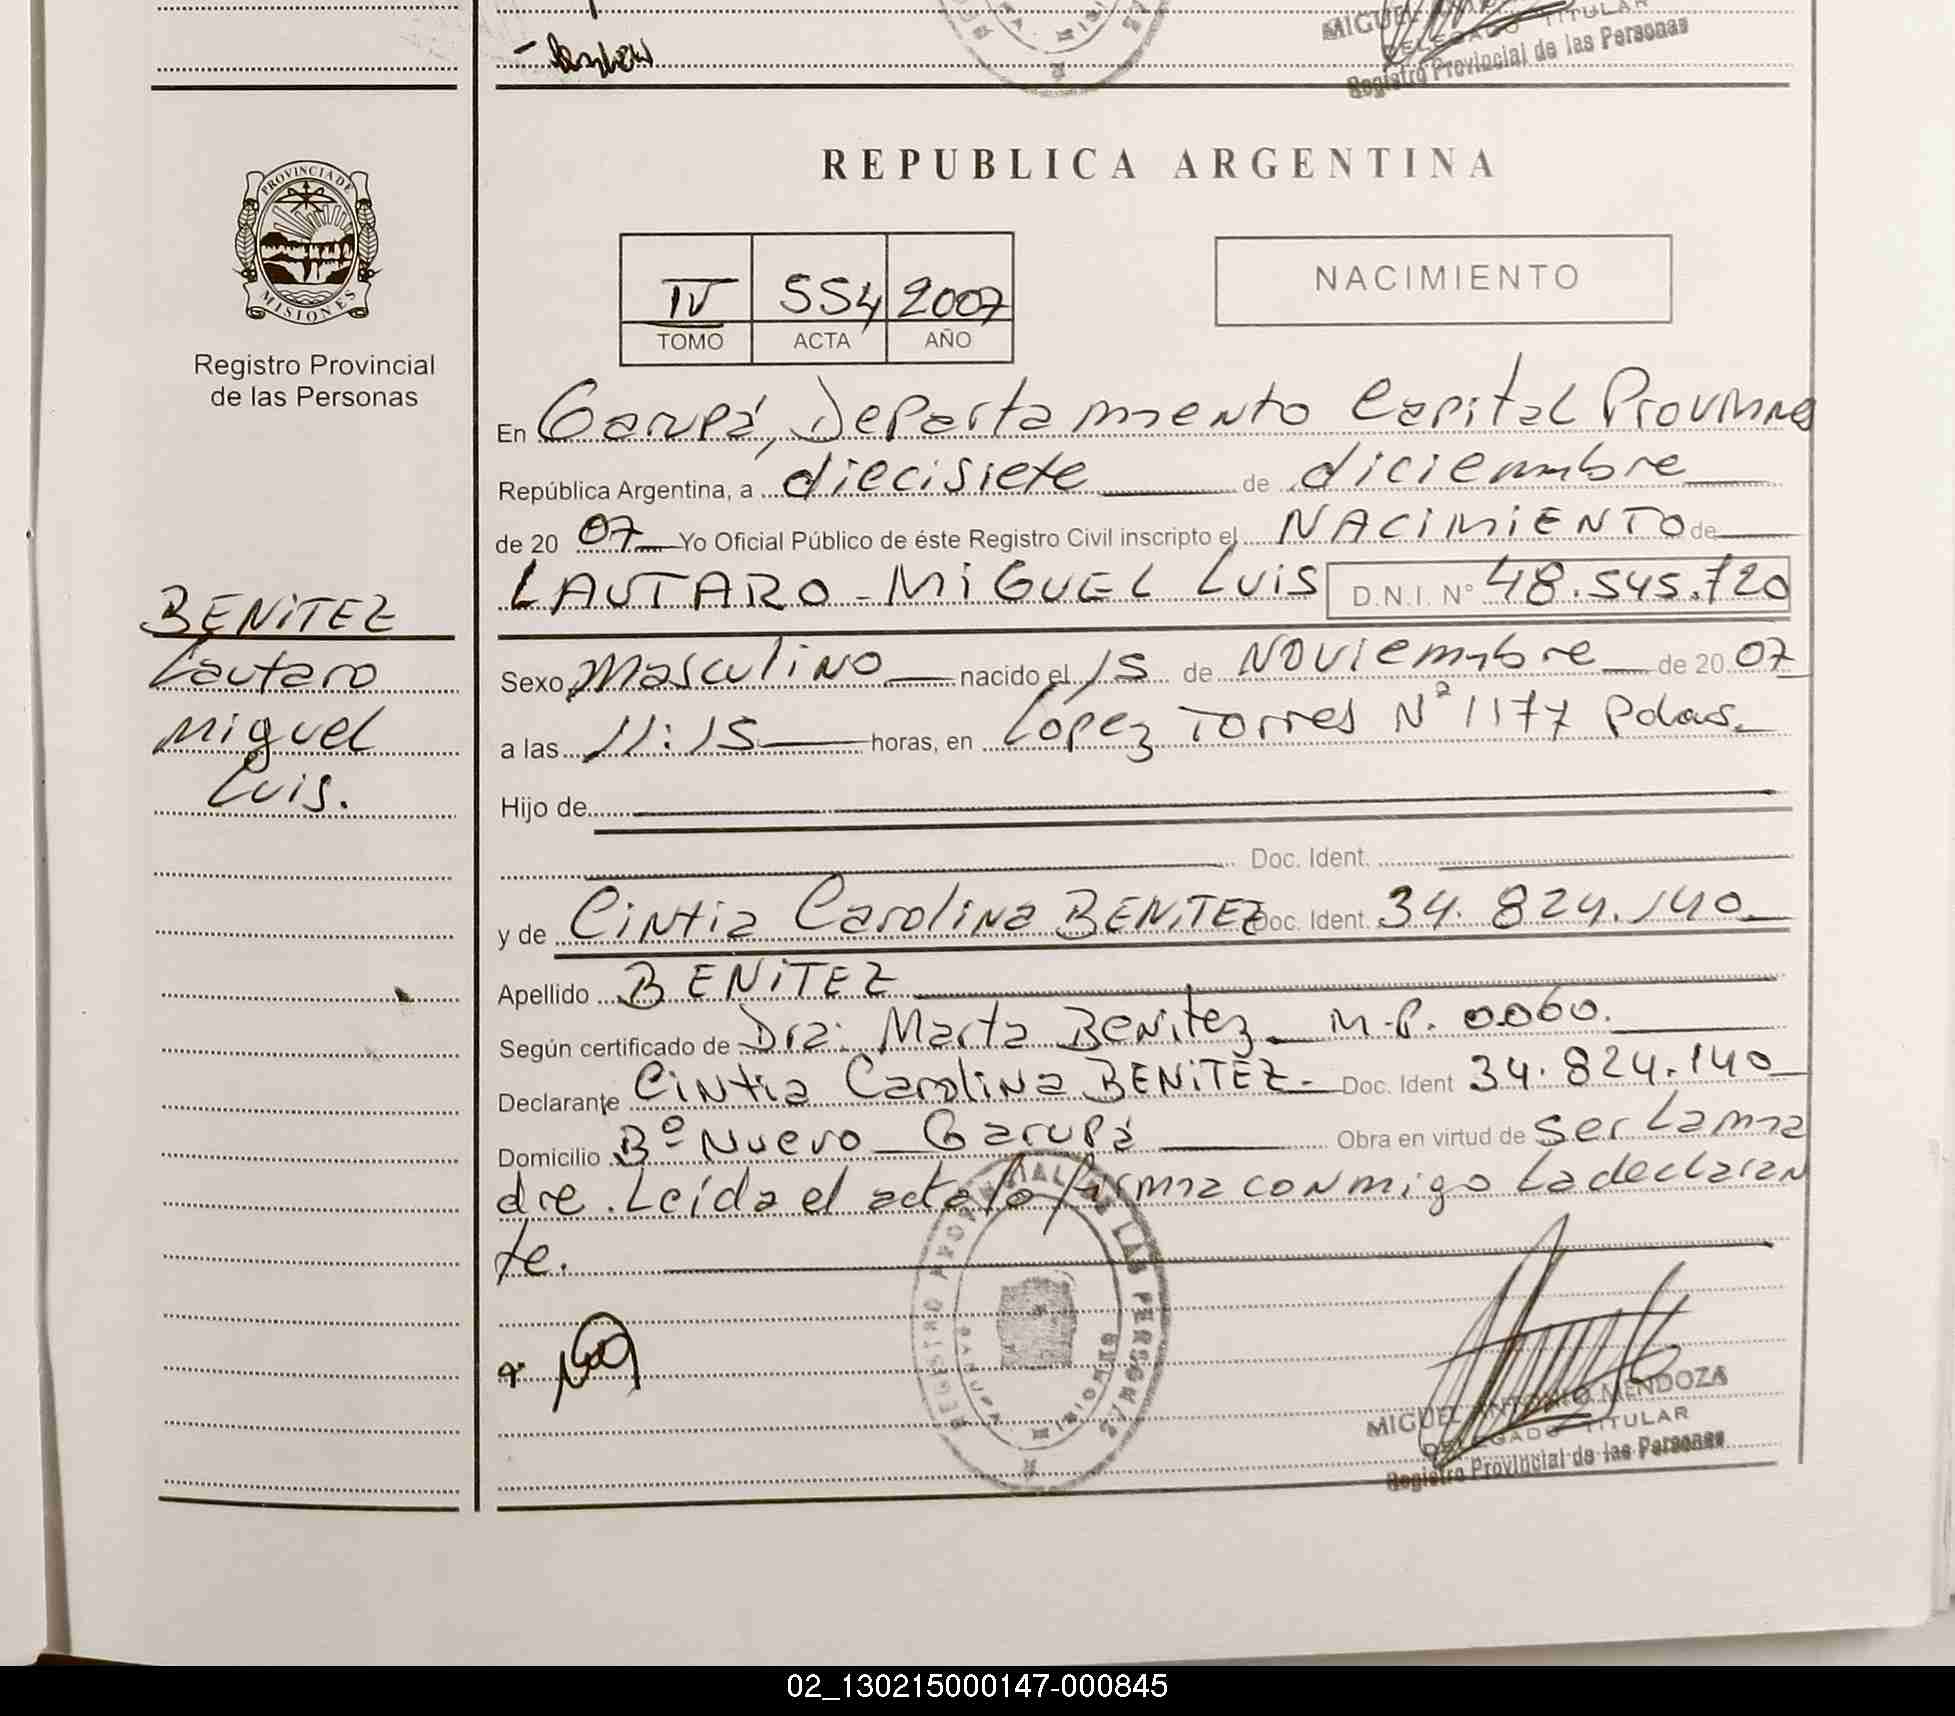 MIGUEL
TITULAR
DELEGADO
Registro Provincial de las Personas
REPUBLICA ARGENTINA
PROVINCIA DE
MISIONES
Registro Provincial
de las Personas
IV 554 2007
TOMO ACTA AÑO
NACIMIENTO
En Garupá, Departamento Capital Provmnes
República Argentina, a diecisiete de diciembre
de 20 07 Yo Oficial Público de éste Registro Civil inscripto el NACIMIENTO de
LAUTARO-MIGUEL LUIS D.N.I. N° 48.545.720
BENITEZ
Lautaro
Miguel
Luis.
Sexo Masculino nacido el 15 de Noviembre de 20 07
a las 11:15 horas, en Lopez Torres N° 1177 Pdas.
Hijo de
Doc. Ident.
y de Cintia Carolina BENITEZ Doc. Ident. 34.824.140
Apellido BENITEZ
Según certificado de Dra: Marta Benitez M.P. 0060.
Declarante Cintia Carolina BENITEZ- Doc. Ident 34.824.140
Domicilio Bº Nuevo Garupá Obra en virtud de ser la ma
dre. Leída el acta la firma conmigo la declaran
te.
REGISTRO PROVINCIAL DE LAS PERSONAS
MIGUEL ANTONIO MENDOZA
DELEGADO TITULAR
Registro Provincial de las Personas
02_130215000147-000845